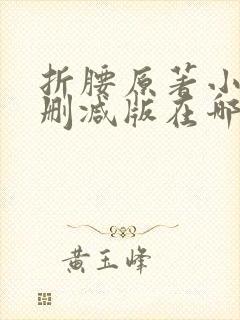 折腰原著小
删减版在哪
黄玉峰